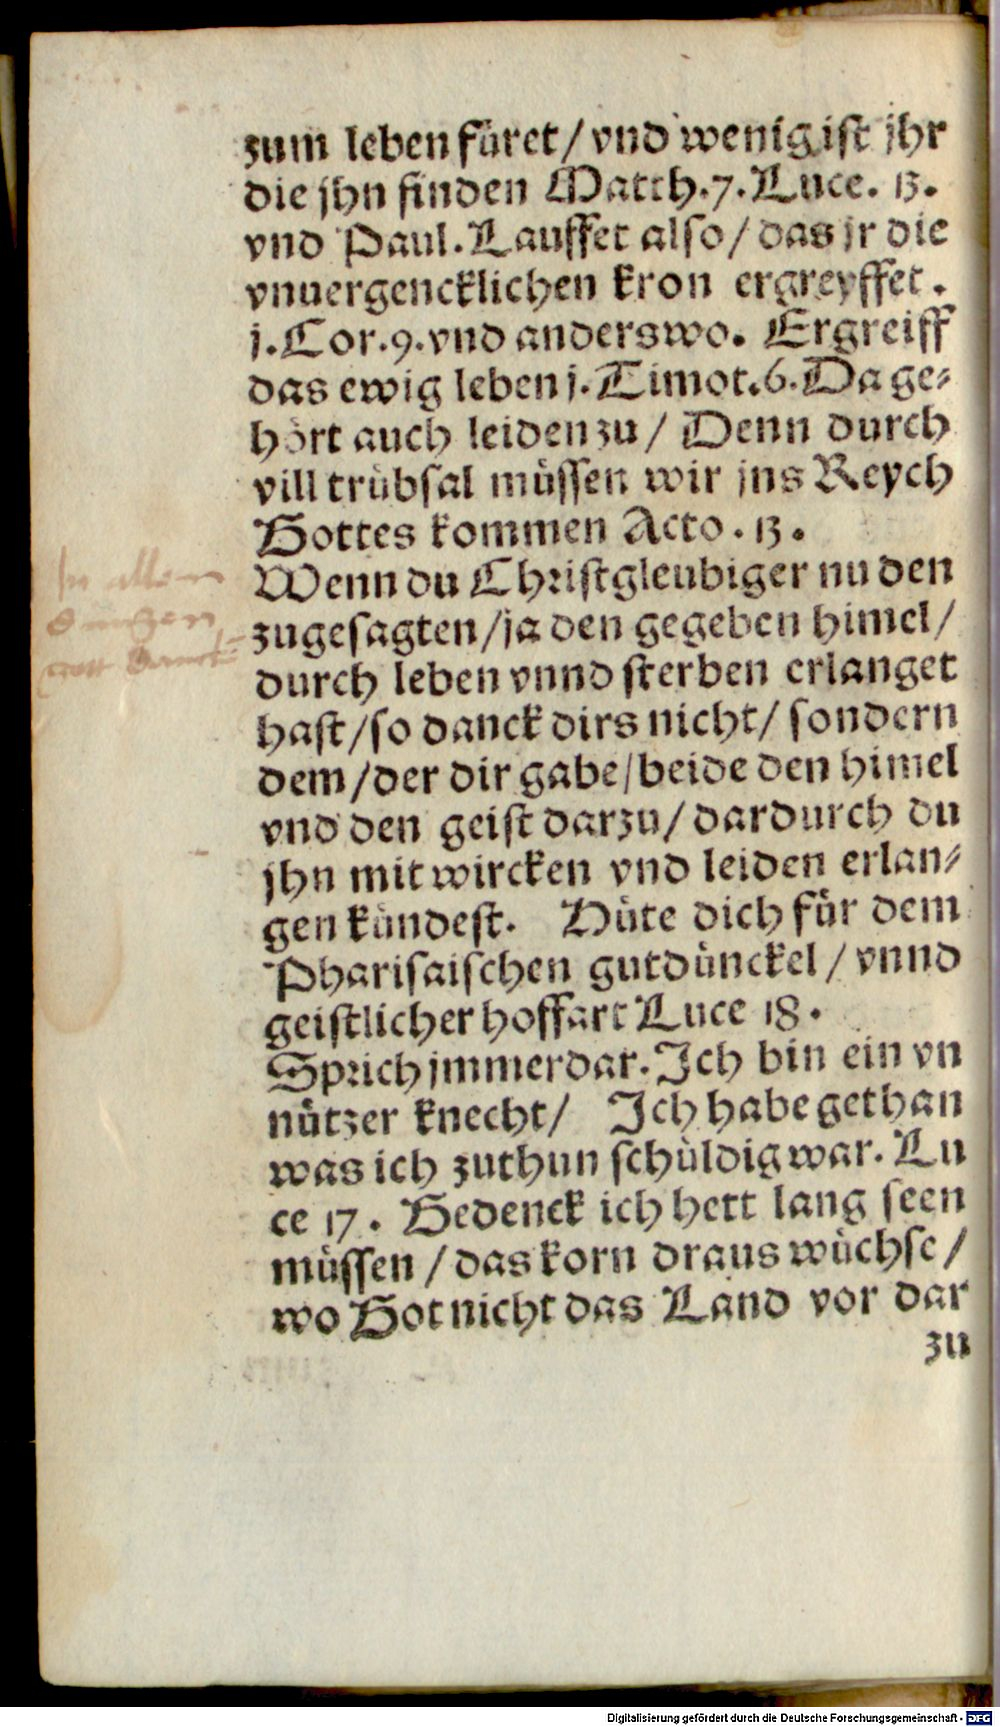 zum leben füret / vnd wenig ist jhr
die jhn finden Matth. 7. Luce. 13.
vnd Paul. Lauffet also / das jr die
vnuergencklichen kron ergreyffet.
j. Cor. 9. vnd anderswo. Ergreiff
das ewig leben j. Timot. 6. Da ge-
hört auch leiden zu / Denn durch
vill trübsal müssen wir jns Reych
Gottes kommen Acto. 13.
Wenn du Christgleubiger nu den
zugesagten / ja den gegeben himel /
durch leben vnnd sterben erlanget
hast / so danck dirs nicht / sondern
dem / der dir gabe / beide den himel
vnd den geist darzu / dardurch du
jhn mit wircken vnd leiden erlan-
gen kündest. Hüte dich für dem
Pharisaischen gutdünckel / vnnd
geistlicher hoffart Luce 18.
Sprich jmmerdar. Ich bin ein vn
nützer knecht / Ich habe gethan
was ich zuthun schüldig war. Lu
ce 17. Gedenck ich hett lang seen
müssen / das korn draus wüchse /
wo Got nicht das Land vor dar
zu
In allem
dingen
gott
Digitalisierung gefördert durch die Deutsche Forschungsgemeinschaft - DFG